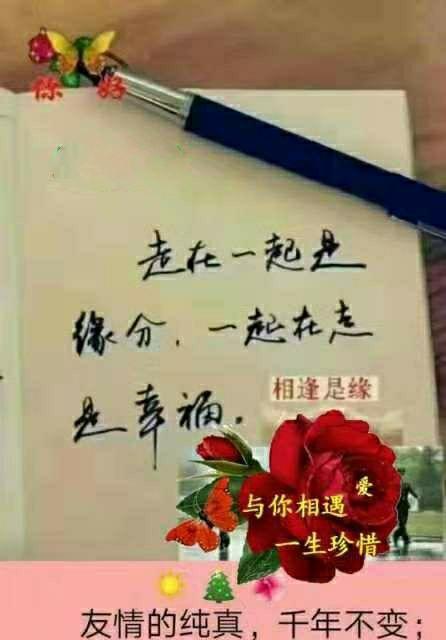 你 好
走在一起是
缘分，一起在走
是幸福。
相逢是缘
爱
与你相遇
一生珍惜
友情的纯真，千年不变；